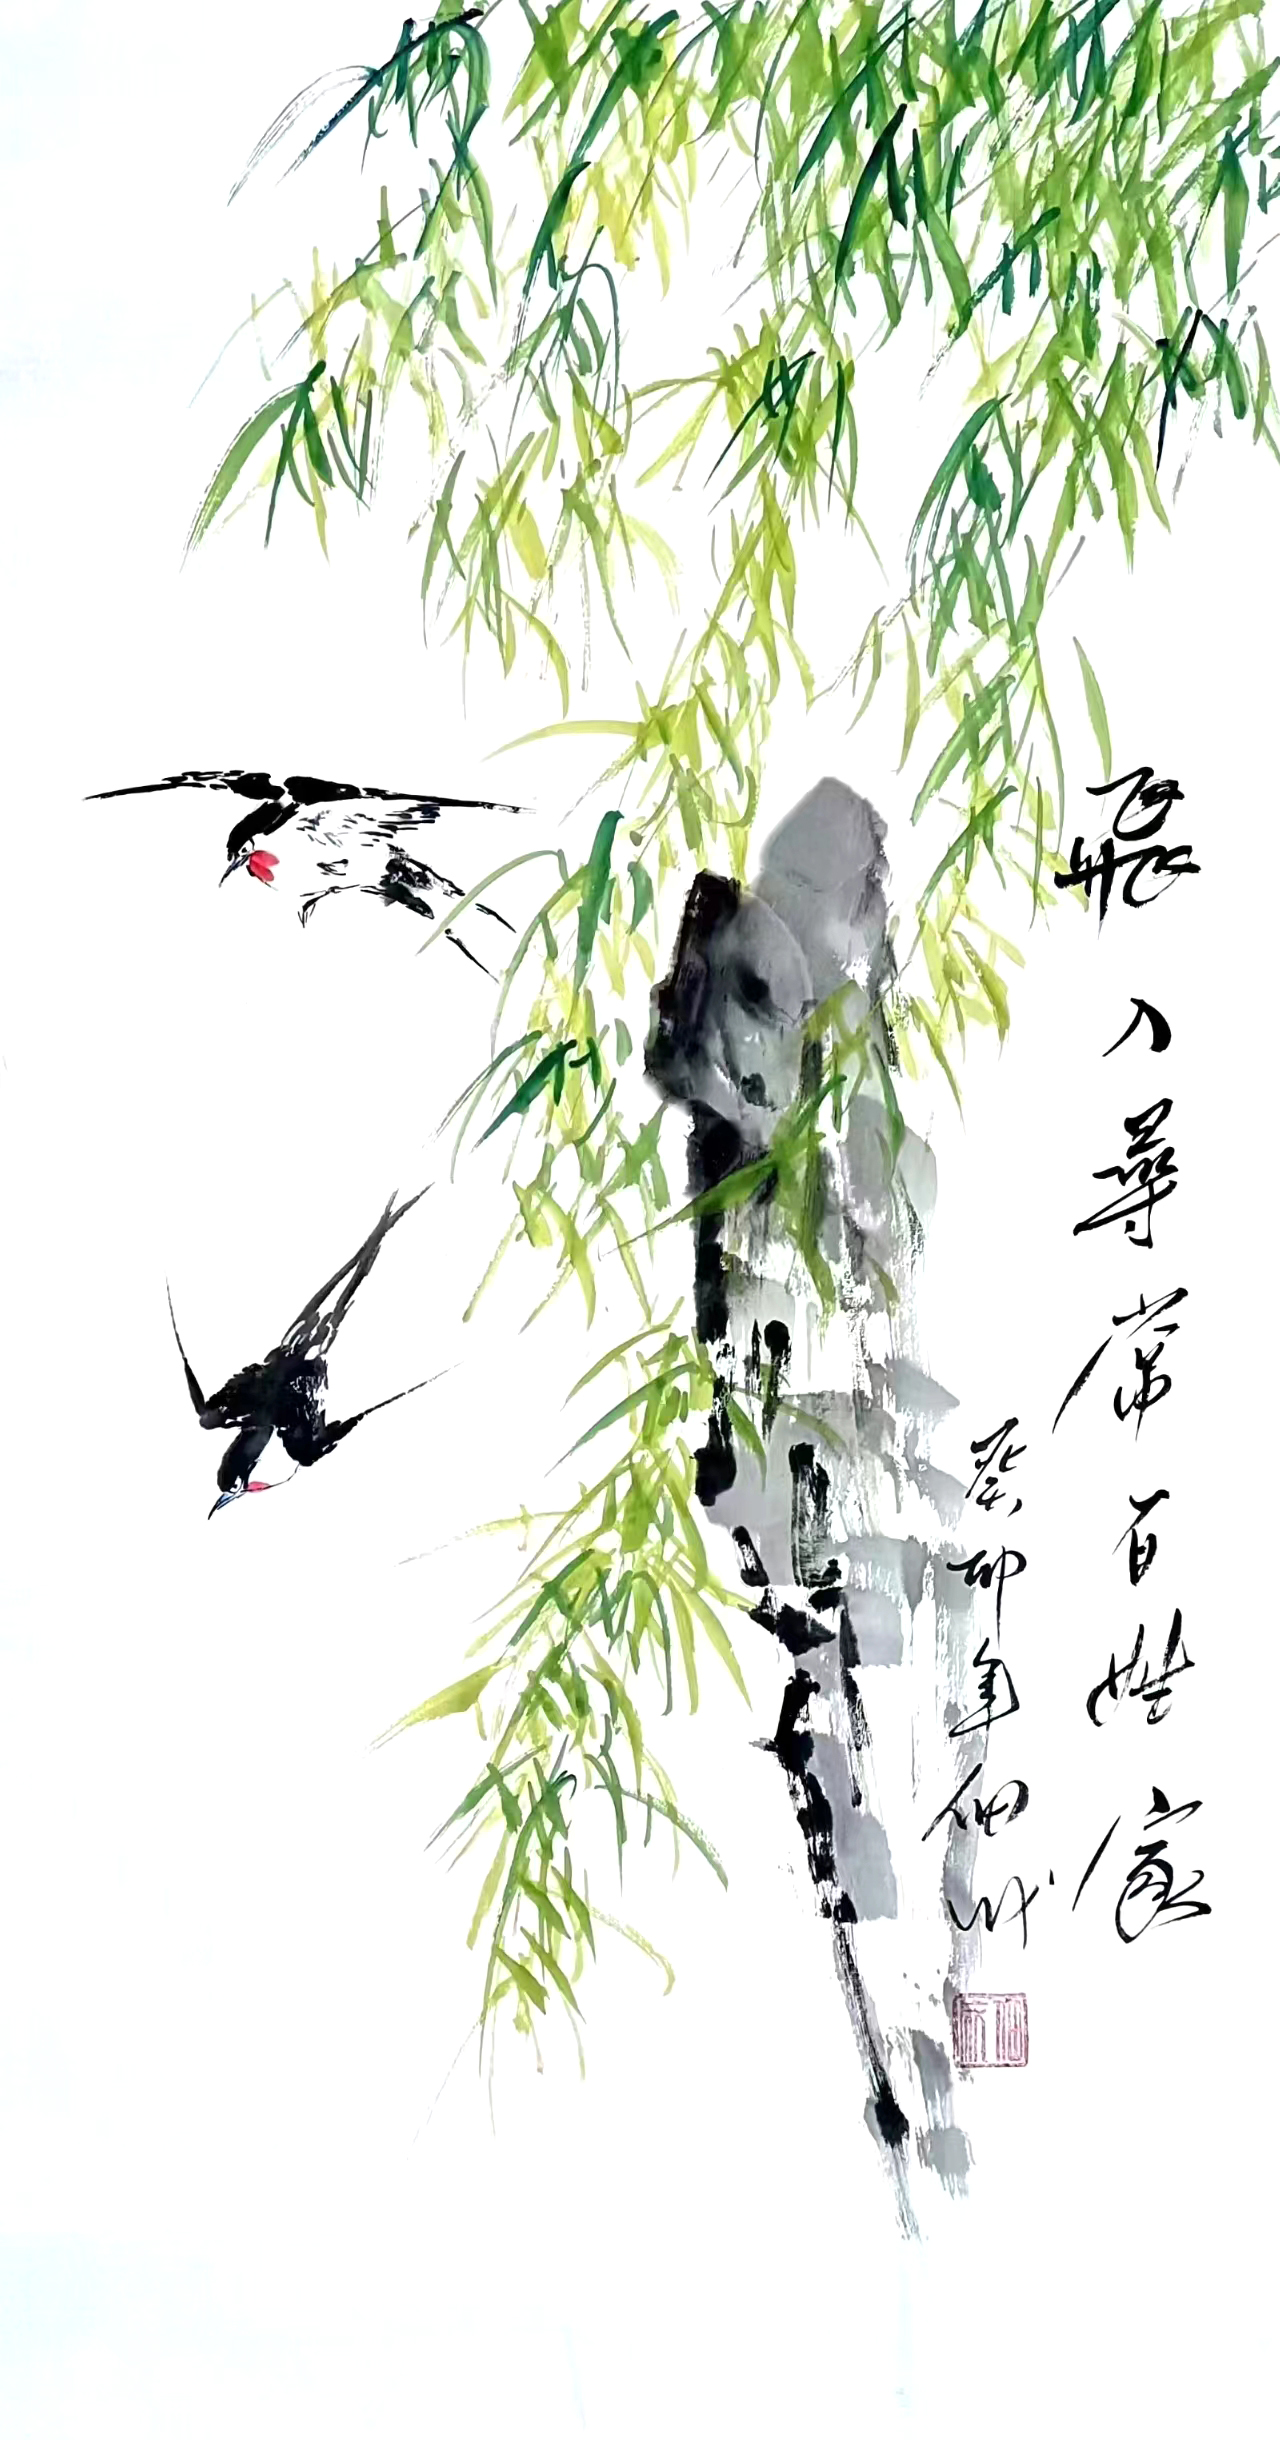 飛入尋常百姓家
癸卯年佃